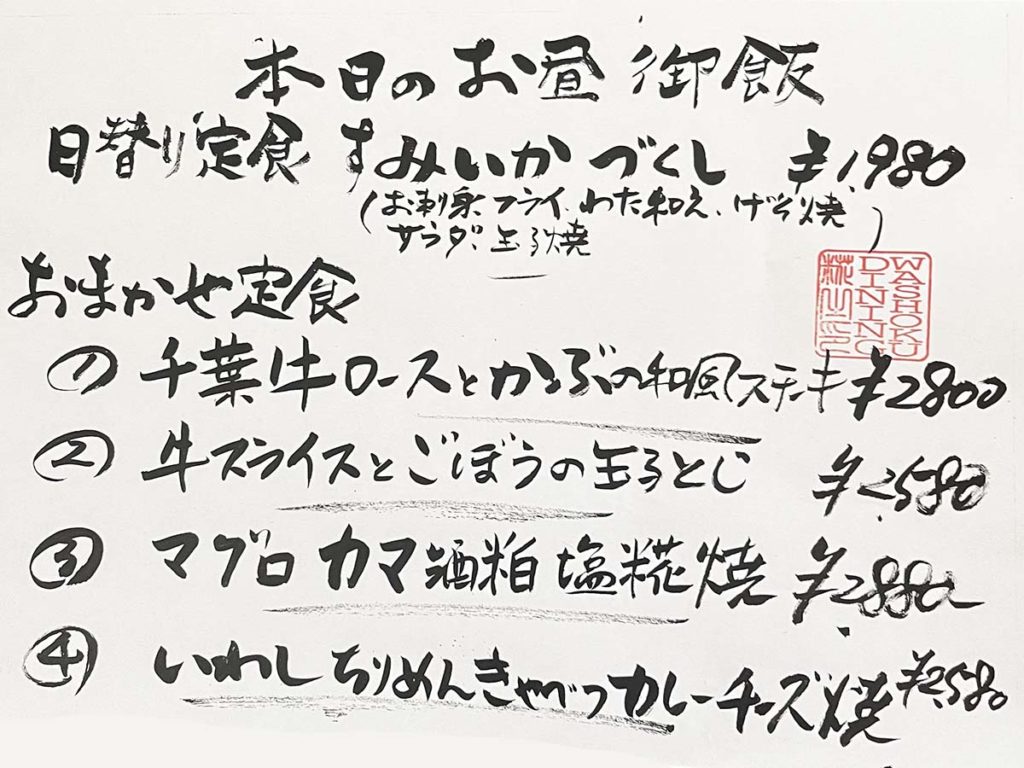 本日のお昼御飯
日替り定食 すみいかづくし ¥1,980
(お刺身、フライ、わた和え、げそ焼
サラダ、玉子焼)
おまかせ定食
WASHOKU
DINING
① 千葉牛ロースとかぶの和風ステーキ ¥2800
② 牛スライスとごぼうの玉子とじ ¥2,580
③ マグロカマ酒粕塩糀焼 ¥2,880
④ いわしちりめんきゃべつカレーチーズ焼 ¥2,580